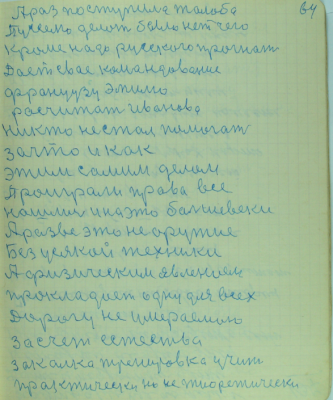 А раз поступила жалоба
64
Русскому делат было нет чего
Кроме надо русского прогнат
Дает свае командование
французу этимо
расчитат иванова
никто не стал помогат
за что и как
этим самим делом
Проиграли права все
нашли и на это балшевеки
А разве это не оружие
Без усякой техники
А физическим явлением
прокладает одну для всех
Дорогу не умераемою
за счет естества
закалка тренировка учит
практически но не теоретически